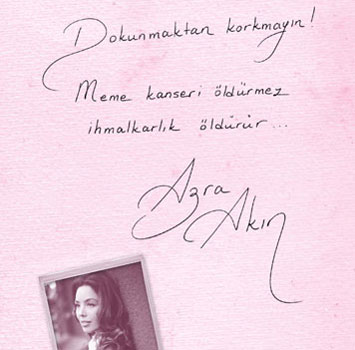 Dokunmaktan korkmayın!
Meme kanseri öldürmez
ihmalkarlık öldürür...
Azra
Akın